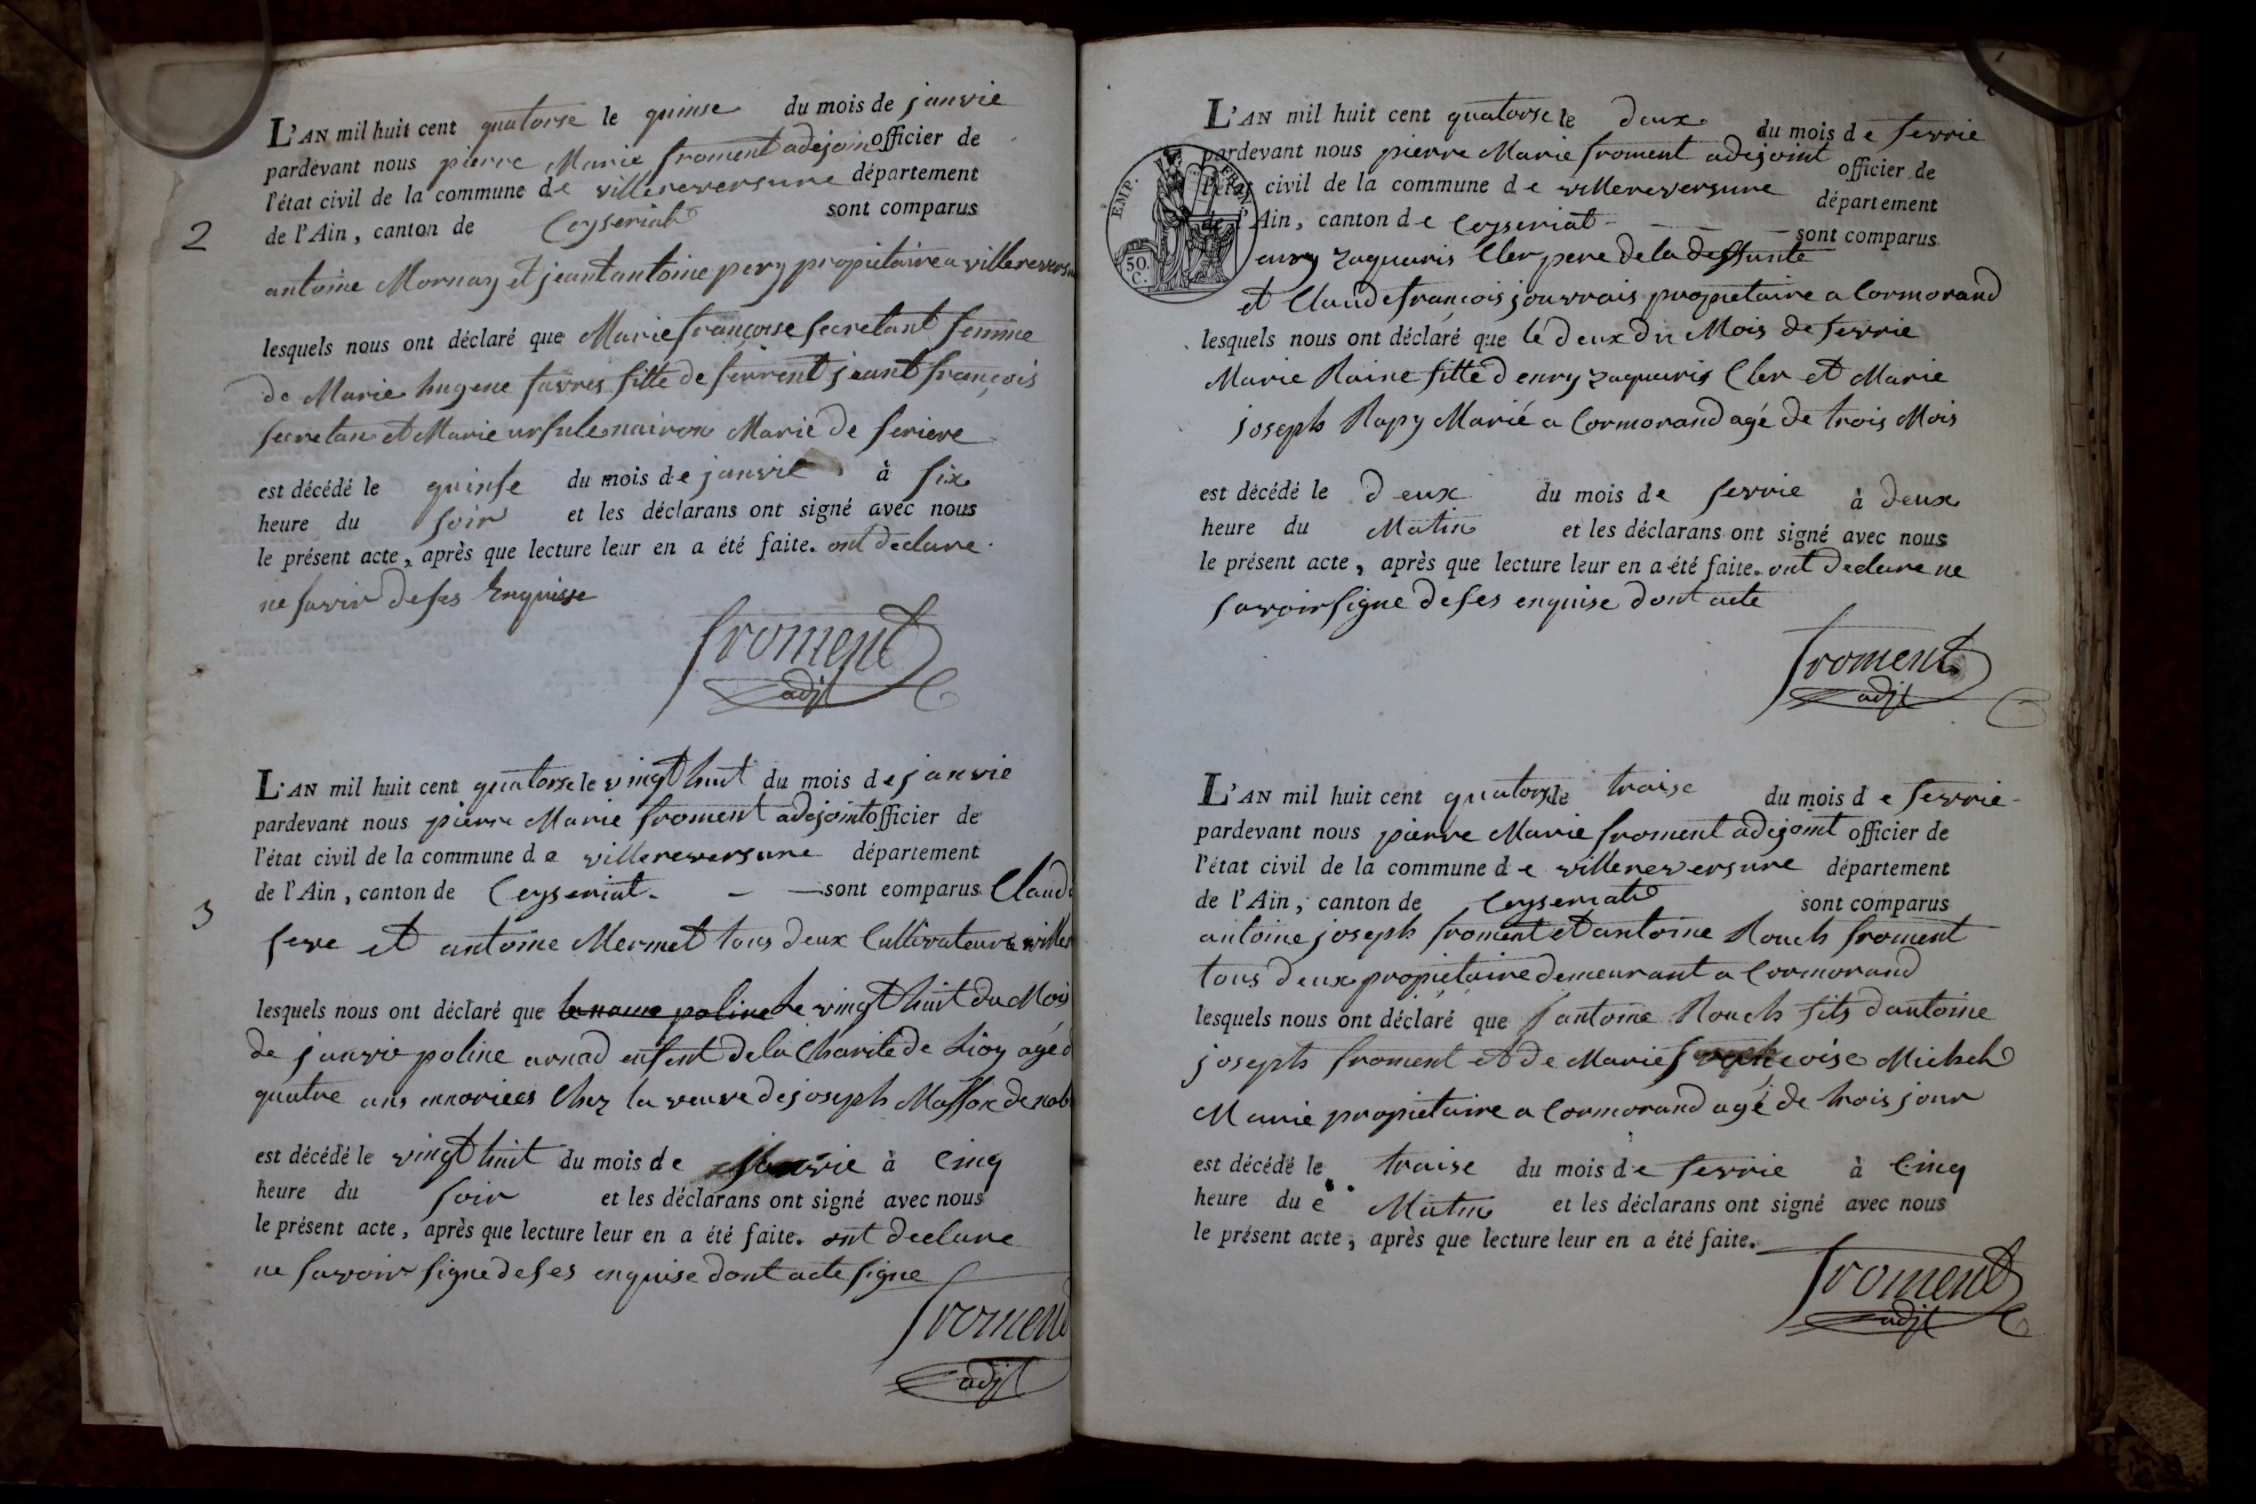 L'AN mil huit cent quatorse le quinse du mois de janvie
pardevant nous pierre Marie froment adejoin officier de
l'état civil de la commune de villereversure département
de l'Ain, canton de Ceyseriat sont comparus
2
antoine Mornay et jeant antoine pery propietaire a villerevers
lesquels nous ont déclaré que Marie françoise secretant femme
de Marie hugene favres fille de feu jeant françois
secretan et Marie ursule nairon Marié de feriere
est décédé le quinse du mois de janvie à six
heure du soir et les déclarans ont signé avec nous
le présent acte, après que lecture leur en a été faite. ont declare
ne savoir de ses Enquisse
froment
adjt
L'AN mil huit cent quatorse le vingt huit du mois de janvie
pardevant nous pierre Marie froment adejoint officier de
l'état civil de la commune de villereversure département
de l'Ain, canton de Ceyseriat - - sont comparus Claude
3
feve et antoine Mermet tous deux Cultivateur a viller
lesquels nous ont déclaré que le vingt huit du Mois
de janvie poline arnad enfent de la Charite de Lioy agé d
quatre ans ennories Chez la veuve de joseph Masson de nob
est décédé le vingt huit du mois de janvie à Cinq
heure du soir et les déclarans ont signé avec nous
le présent acte, après que lecture leur en a été faite. ont declare
ne savoir signe de ses enquise dont acte signe
froment
adjt
L'AN mil huit cent quatorse le deux du mois de fevrie
pardevant nous pierre Marie froment adejoint officier de
l'état civil de la commune de villereversure département
de l'Ain, canton de Ceyseriat - - - sont comparus
EMP. FRAN.
50. C.
enry zaquaris Cler pere de la deffunte
et Claude françois jouvrais propietaire a Cormorand
lesquels nous ont déclaré que le deux du Mois de fevrie
Marie Raine fille d enry zaquaris Cler et Marie
joseph Rapy Marié a Cormorand agé de trois Mois
est décédé le deux du mois de fevrie à deux
heure du Matin et les déclarans ont signé avec nous
le présent acte, après que lecture leur en a été faite. ont declare ne
savoir signe de ses enquise dont acte
froment
adjt
L'AN mil huit cent quatorse le traise du mois de fevrie
pardevant nous pierre Marie froment adejoint officier de
l'état civil de la commune de villereversure département
de l'Ain, canton de Ceyseriat sont comparus
antoine joseph froment et antoine Rouch froment
tous deux propietaire demeurant a Cormorand
lesquels nous ont déclaré que antoine Rouch fils d antoine
joseph froment et de Marie françoise Michel
Marie propietaire a Cormorand agé de trois jour
est décédé le traise du mois de fevrie à Cinq
heure du Matin et les déclarans ont signé avec nous
le présent acte, après que lecture leur en a été faite.
froment
adjt